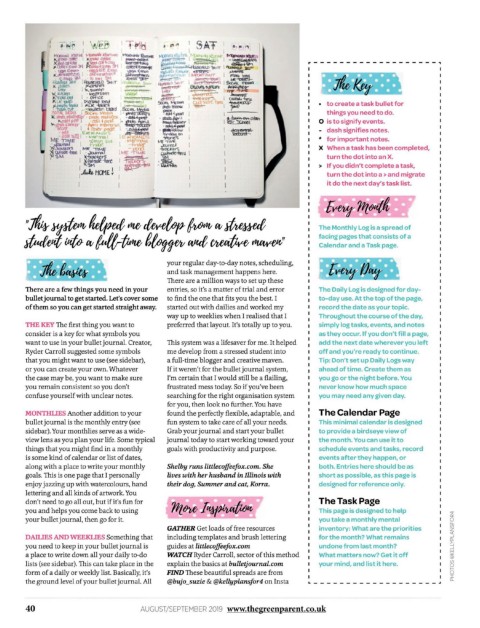 SAT
The Key
• to create a task bullet for
things you need to do.
O is to signify events.
- dash signifies notes.
* for important notes.
X When a task has been completed,
turn the dot into an X.
> If you didn't complete a task,
turn the dot into a > and migrate
it do the next day's task list.
Every Month
The Monthly Log is a spread of
facing pages that consists of a
Calendar and a Task page.
"This system helped me develop from a stressed
student into a full-time blogger and creative maven"
The basics
There are a few things you need in your
bullet journal to get started. Let's cover some
of them so you can get started straight away.
THE KEY The first thing you want to
consider is a key for what symbols you
want to use in your bullet journal. Creator,
Ryder Carroll suggested some symbols
that you might want to use (see sidebar),
or you can create your own. Whatever
the case may be, you want to make sure
you remain consistent so you don't
confuse yourself with unclear notes.
MONTHLIES Another addition to your
bullet journal is the monthly entry (see
sidebar). Your monthlies serve as a wide-
view lens as you plan your life. Some typical
things that you might find in a monthly
is some kind of calendar or list of dates,
along with a place to write your monthly
goals. This is one page that I personally
enjoy jazzing up with watercolours, hand
lettering and all kinds of artwork. You
don't need to go all out, but if it's fun for
you and helps you come back to using
your bullet journal, then go for it.
DAILIES AND WEEKLIES Something that
you need to keep in your bullet journal is
a place to write down all your daily to-do
lists (see sidebar). This can take place in the
form of a daily or weekly list. Basically, it's
the ground level of your bullet journal. All
your regular day-to-day notes, scheduling,
and task management happens here.
There are a million ways to set up these
entries, so it's a matter of trial and error
to find the one that fits you the best. I
started out with dailies and worked my
way up to weeklies when I realised that I
preferred that layout. It's totally up to you.
This system was a lifesaver for me. It helped
me develop from a stressed student into
a full-time blogger and creative maven.
If it weren't for the bullet journal system,
I'm certain that I would still be a flailing,
frustrated mess today. So if you've been
searching for the right organisation system
for you, then look no further. You have
found the perfectly flexible, adaptable, and
fun system to take care of all your needs.
Grab your journal and start your bullet
journal today to start working toward your
goals with productivity and purpose.
Shelby runs littlecoffeefox.com. She
lives with her husband in Illinois with
their dog, Summer and cat, Korra.
More Inspiration
GATHER Get loads of free resources
including templates and brush lettering
guides at littlecoffeefox.com
WATCH Ryder Carroll, sector of this method
explain the basics at bulletjournal.com
FIND These beautiful spreads are from
@bujo_suzie & @kellyplansfor4 on Insta
Every Day
The Daily Log is designed for day-
to-day use. At the top of the page,
record the date as your topic.
Throughout the course of the day,
simply log tasks, events, and notes
as they occur. If you don't fill a page,
add the next date wherever you left
off and you're ready to continue.
Tip: Don't set up Daily Logs way
ahead of time. Create them as
you go or the night before. You
never know how much space
you may need any given day.
The Calendar Page
This minimal calendar is designed
to provide a birdseye view of
the month. You can use it to
schedule events and tasks, record
events after they happen, or
both. Entries here should be as
short as possible, as this page is
designed for reference only.
The Task Page
This page is designed to help
you take a monthly mental
inventory: What are the priorities
for the month? What remains
undone from last month?
What matters now? Get it off
your mind, and list it here.
PHOTOS @KELLYPLANSFOR4
40
AUGUST/SEPTEMBER 2019 www.thegreenparent.co.uk